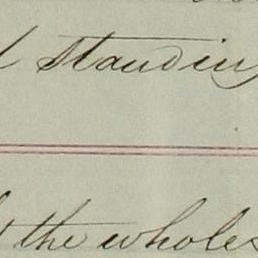 standin
t the wholes